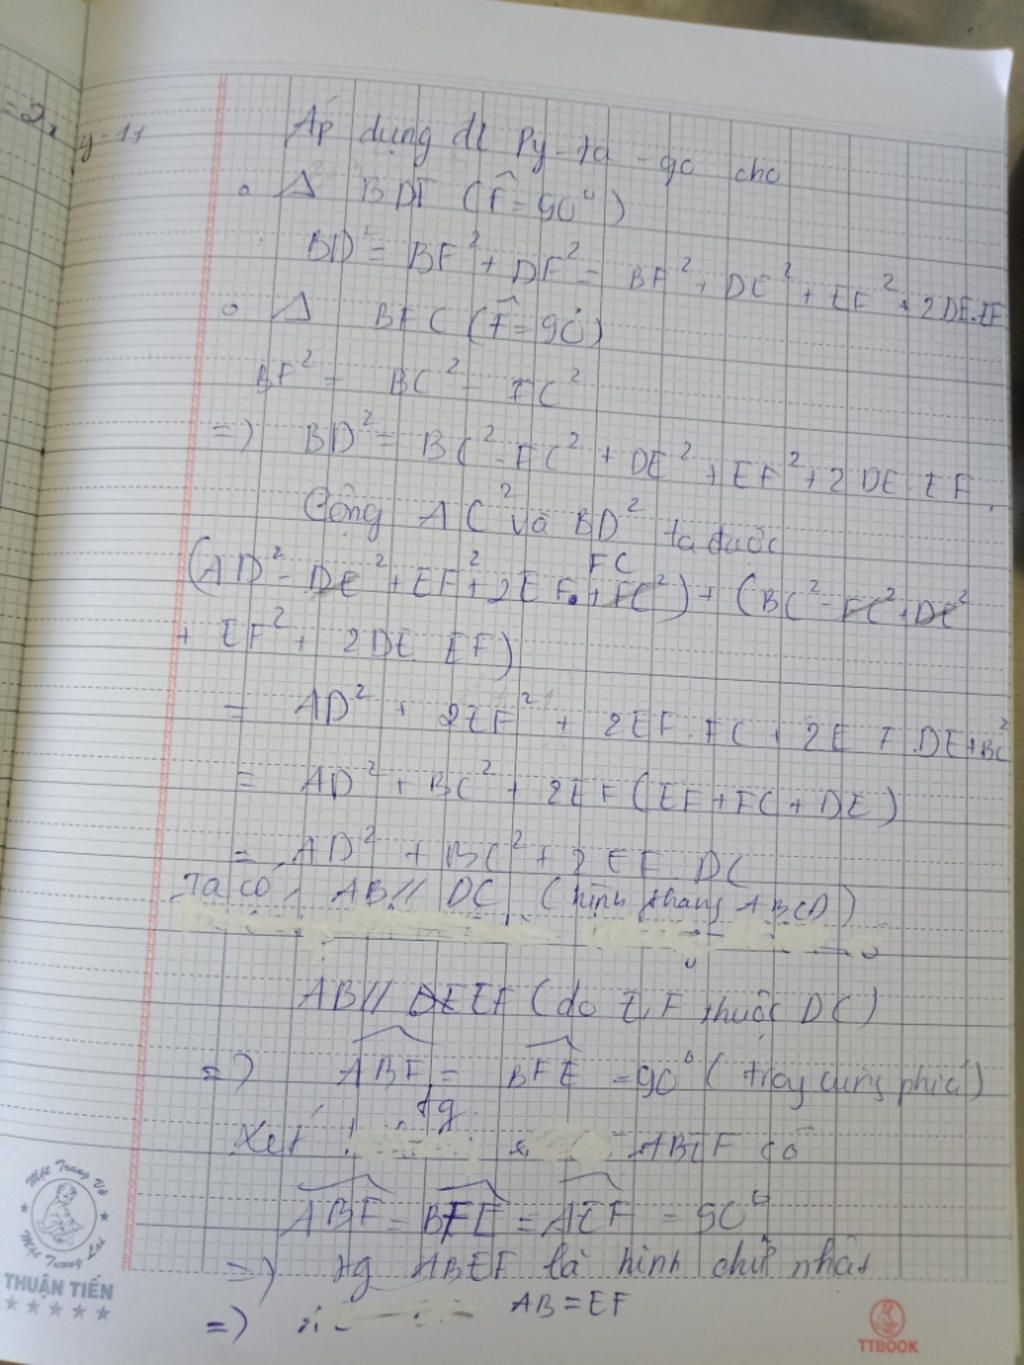 = 2x y-11
Áp dụng đl Py-ta-go cho
• Δ BDF (F̂ = 90⁰)
BD² = BF² + DF² = BF² + DE² + EF² + 2DE.EF
• Δ BFC (F̂ = 90⁰)
BF² = BC² - FC²
=) BD² = BC² - FC² + DE² + EF² + 2 DE . EF
Cộng AC² và BD² ta được
FC
(AD² - DE² + EF² + 2EF. + FC²) + (BC² - FC² + DE²
+ EF² + 2DE. EF)
= AD² + 2EF² + 2EF. FC + 2E F .DE + BC²
= AD² + BC² + 2EF (EF + FC + DE)
= AD² + BC² + 2 EF . DC
Ta có, AB // DC (hình thang ABCD)
AB // EF (do E, F thuộc DC)
=) ABF = BFE = 90⁰ (cùng phía)
Xét tg ABEF có
ABF = BFE = AEF = 90⁰
=) tg ABEF là hình chữ nhật
=) AB = EF
Một Trang Vở
Một Tương Lai
THUẬN TIẾN
TTBOOK